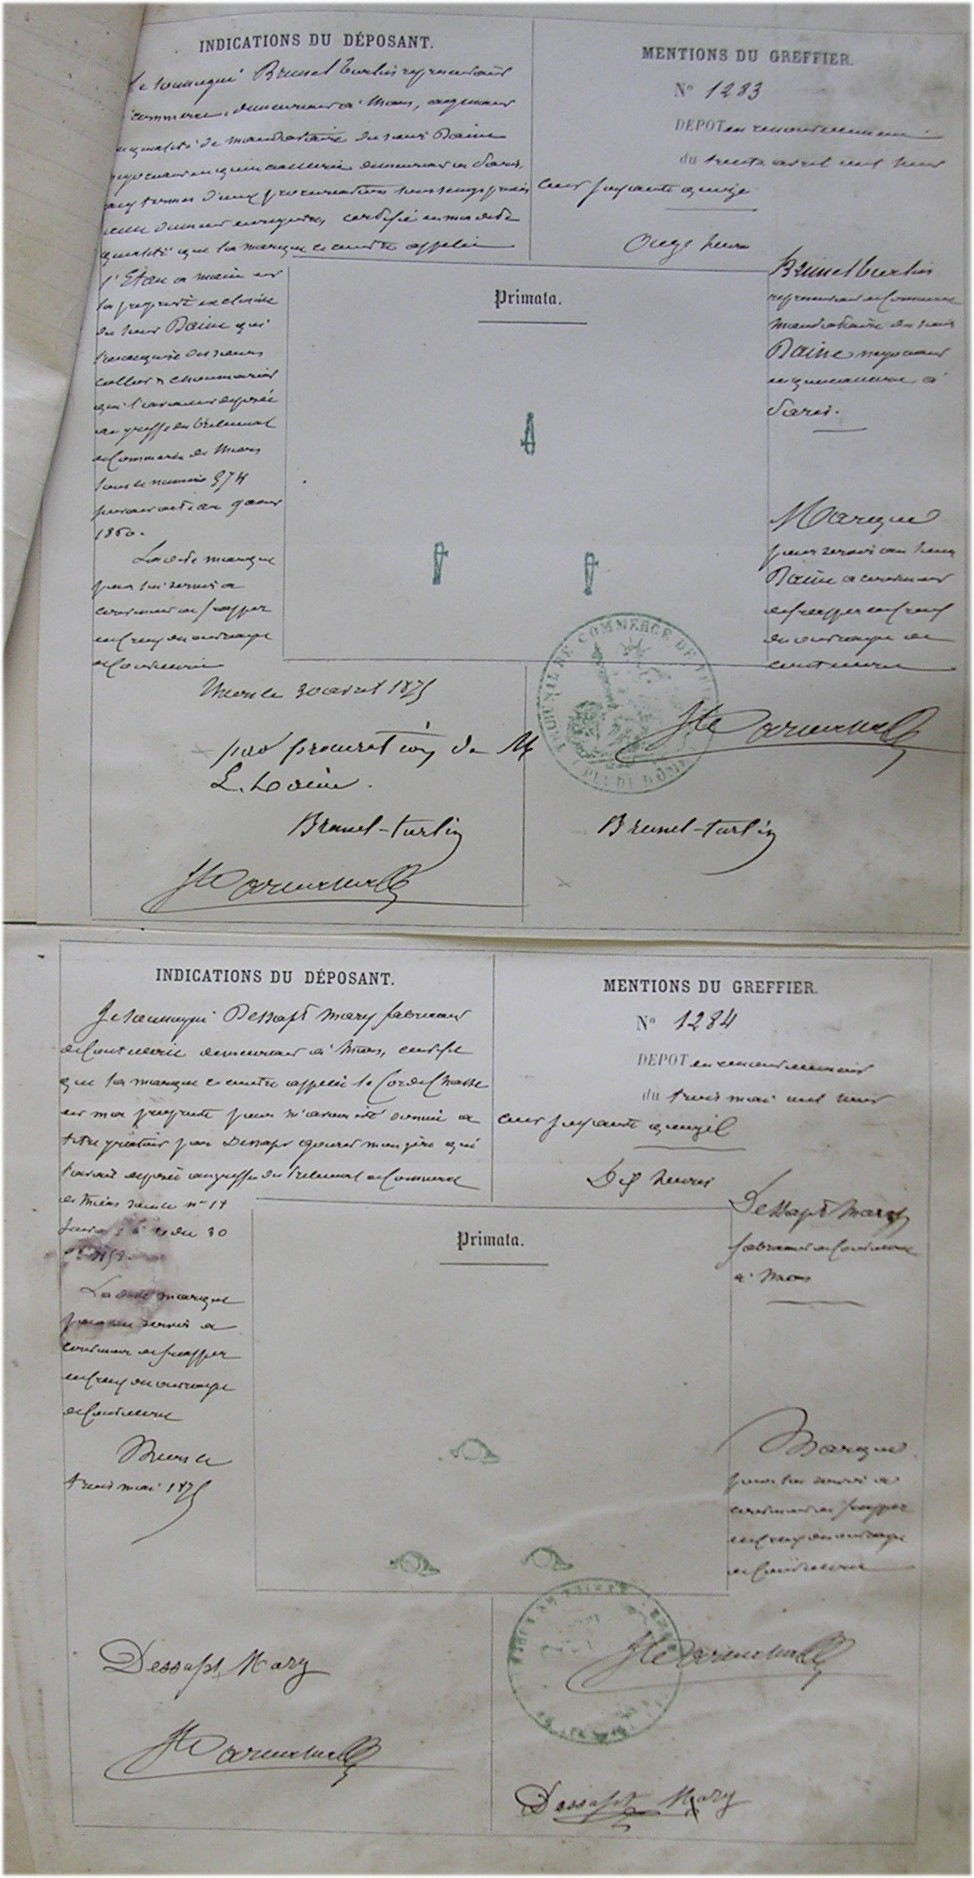 INDICATIONS DU DÉPOSANT.
Le soussigné Brunel turlin représentant
commerce, demeurant à Thiers, agissant
en qualité de mandataire du sieur Daine
négociant en quincaillerie demeurant à Paris,
aux termes d'une procuration sous seings privés
certifie en ma dite
qualité que la marque ci contre appelée
l'Etau à main est
la propriété exclusive
du sieur Daine qui
l'a acquise des sieurs
qui l'avaient déposée
au greffe du tribunal
de Commerce de Thiers
sous le numéro 974
1860.
La dite marque
pour lui servir à
continuer de frapper
en creux ses ouvrages
de Coutellerie
Thiers le 30 avril 1875
par procuration de M
L. Daine.
Brunel-turlin
MENTIONS DU GREFFIER.
N° 1283
DEPOT en renouvellement
du trente avril mil huit
cent soixante quinze
Onze heures
Primata.
Brunel turlin
représentant de Commerce
mandataire du sieur
Daine négociant
en quincaillerie, à
Paris.
Marque
pour servir au sieur
Daine à continuer
de frapper en creux
ses ouvrages de
coutellerie
TRIBUNAL DE COMMERCE DE
PUY DE DOME
Brunel-turlin
INDICATIONS DU DÉPOSANT.
Je soussigné Dessapt Mary fabricant
de Coutellerie demeurant à Thiers, certifie
que la marque ci contre appelée le Cor de Chasse
est ma propriété pour m'avoir été donnée à
titre gratuit par Dessapt mon père qui
l'avait déposée au greffe du Tribunal de Commerce
de Thiers sous le n°
du 30
La dite marque
pour me servir à
continuer de frapper
en creux ses ouvrages
de Coutellerie
Thiers le
trois mai 1875
Dessapt Mary
MENTIONS DU GREFFIER.
N° 1284
DEPOT en renouvellement
du trois mai mil huit
cent soixante quinze
Dix heures
Primata.
Dessapt Mary
fabricant de Coutellerie
à Thiers
Marque
pour lui servir à
continuer de frapper
en creux ses ouvrages
de Coutellerie
Dessapt Mary